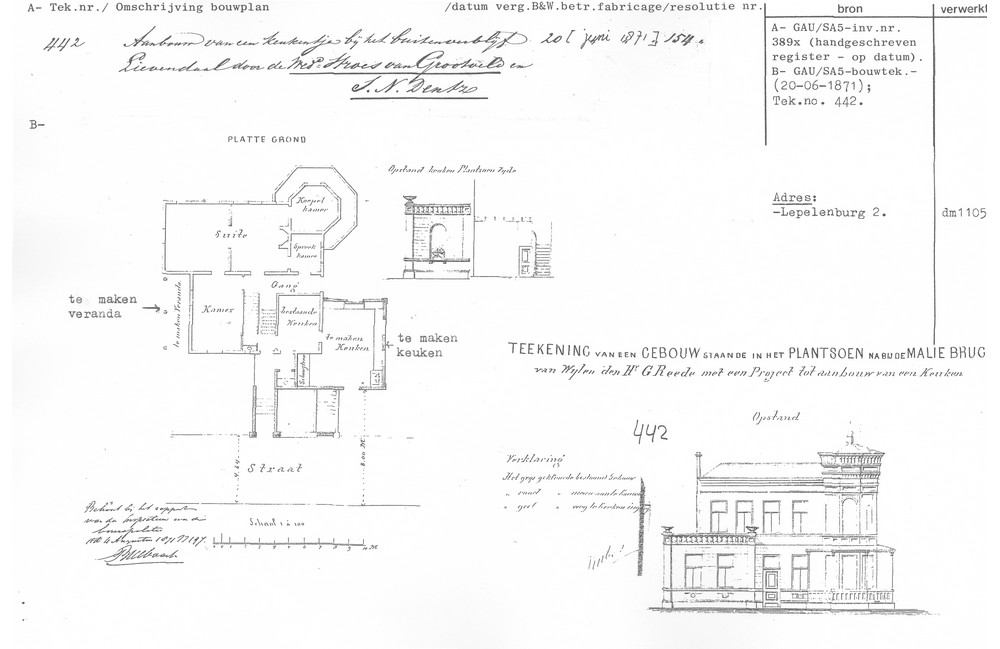 A- Tek.nr./ Omschrijving bouwplan
/datum verg.B&W.betr.fabricage/resolutie nr.
bron
verwerkt
442 Aanbouw van een keukentje bij het buitenverblijf 20 [juni 1871] 154.
Lievendaal door de Wed. Stroes van Grootveld en
S. N. Dentz
A- GAU/SA5-inv.nr.
389x (handgeschreven
register - op datum).
B- GAU/SA5-bouwtek.-
(20-06-1871);
Tek.no. 442.
B-
PLATTE GROND
Opstand keuken Plantsoen Zyde
Adres:
-Lepelenburg 2.
dm1105
Koepel
kamer
Suite
Spreek
kamer
Gang
te maken
veranda
te maken Veranda
Kamer
bestaande
Keuken
te maken
Keuken
te maken
keuken
TEEKENING VAN EEN GEBOUW STAANDE IN HET PLANTSOEN NABIJ DE MALIE BRUG
van Wylen den Hr G Reede met een Project tot aanbouw van een Keuken
Opstand
442
Straat
4.60
8.00 M
Verklaring
Het grijs gekleurde bestaand Gebouw
" rood "
" geel "
Schaal 1 à 100
Behoort bij het rapport
van de